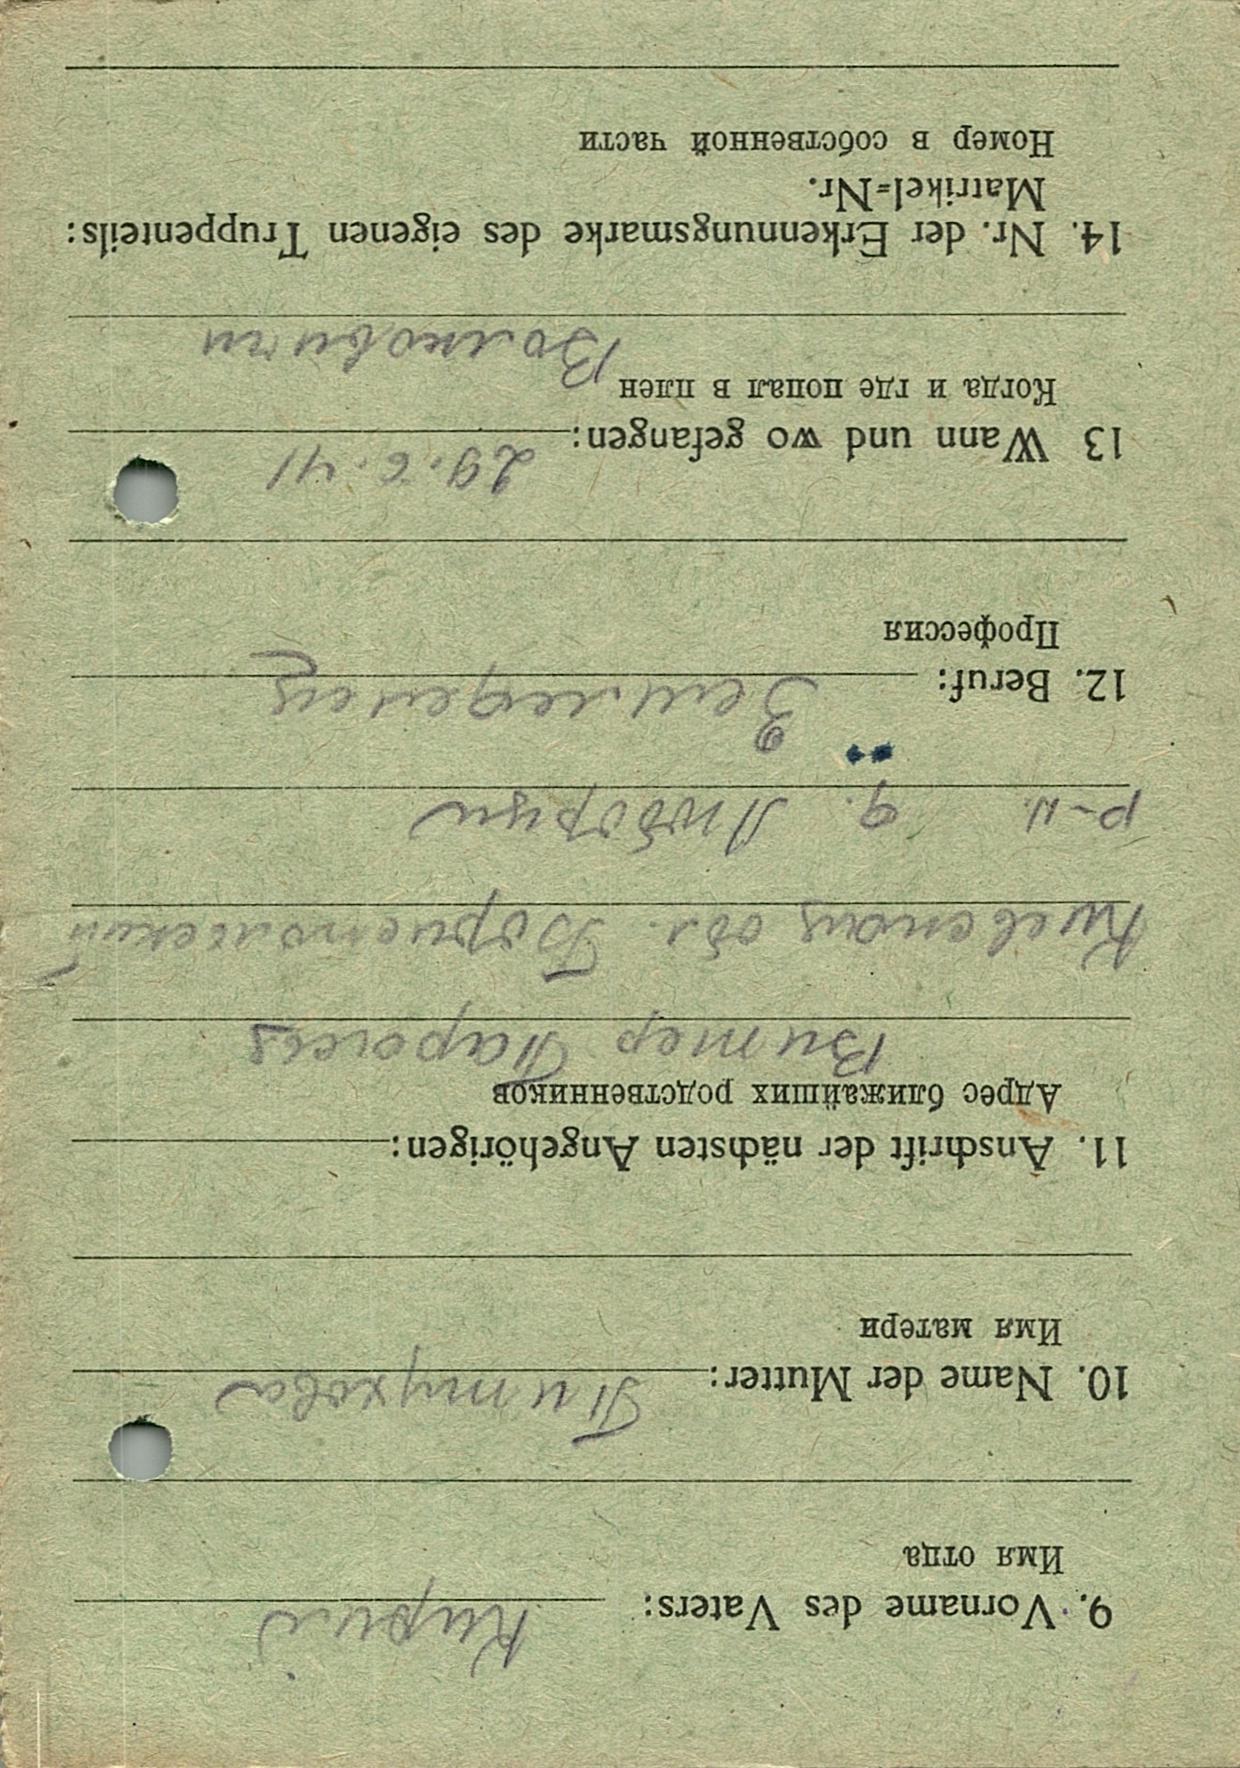 9. Vorname des Vaters: Кирил
Имя отца
10. Name der Mutter: Питухова
Имя матери
11. Anschrift der nächsten Angehörigen:
Адрес ближайших родственников
Витер
обл.
р-н. д. Любарци
12. Beruf: Земледелец
Профессия
13 Wann und wo gefangen: 29.6.41
Когда и где попал в плен Волковичи
14. Nr. der Erkennungsmarke des eigenen Truppenteils:
Matrikel=Nr.
Номер в собственной части